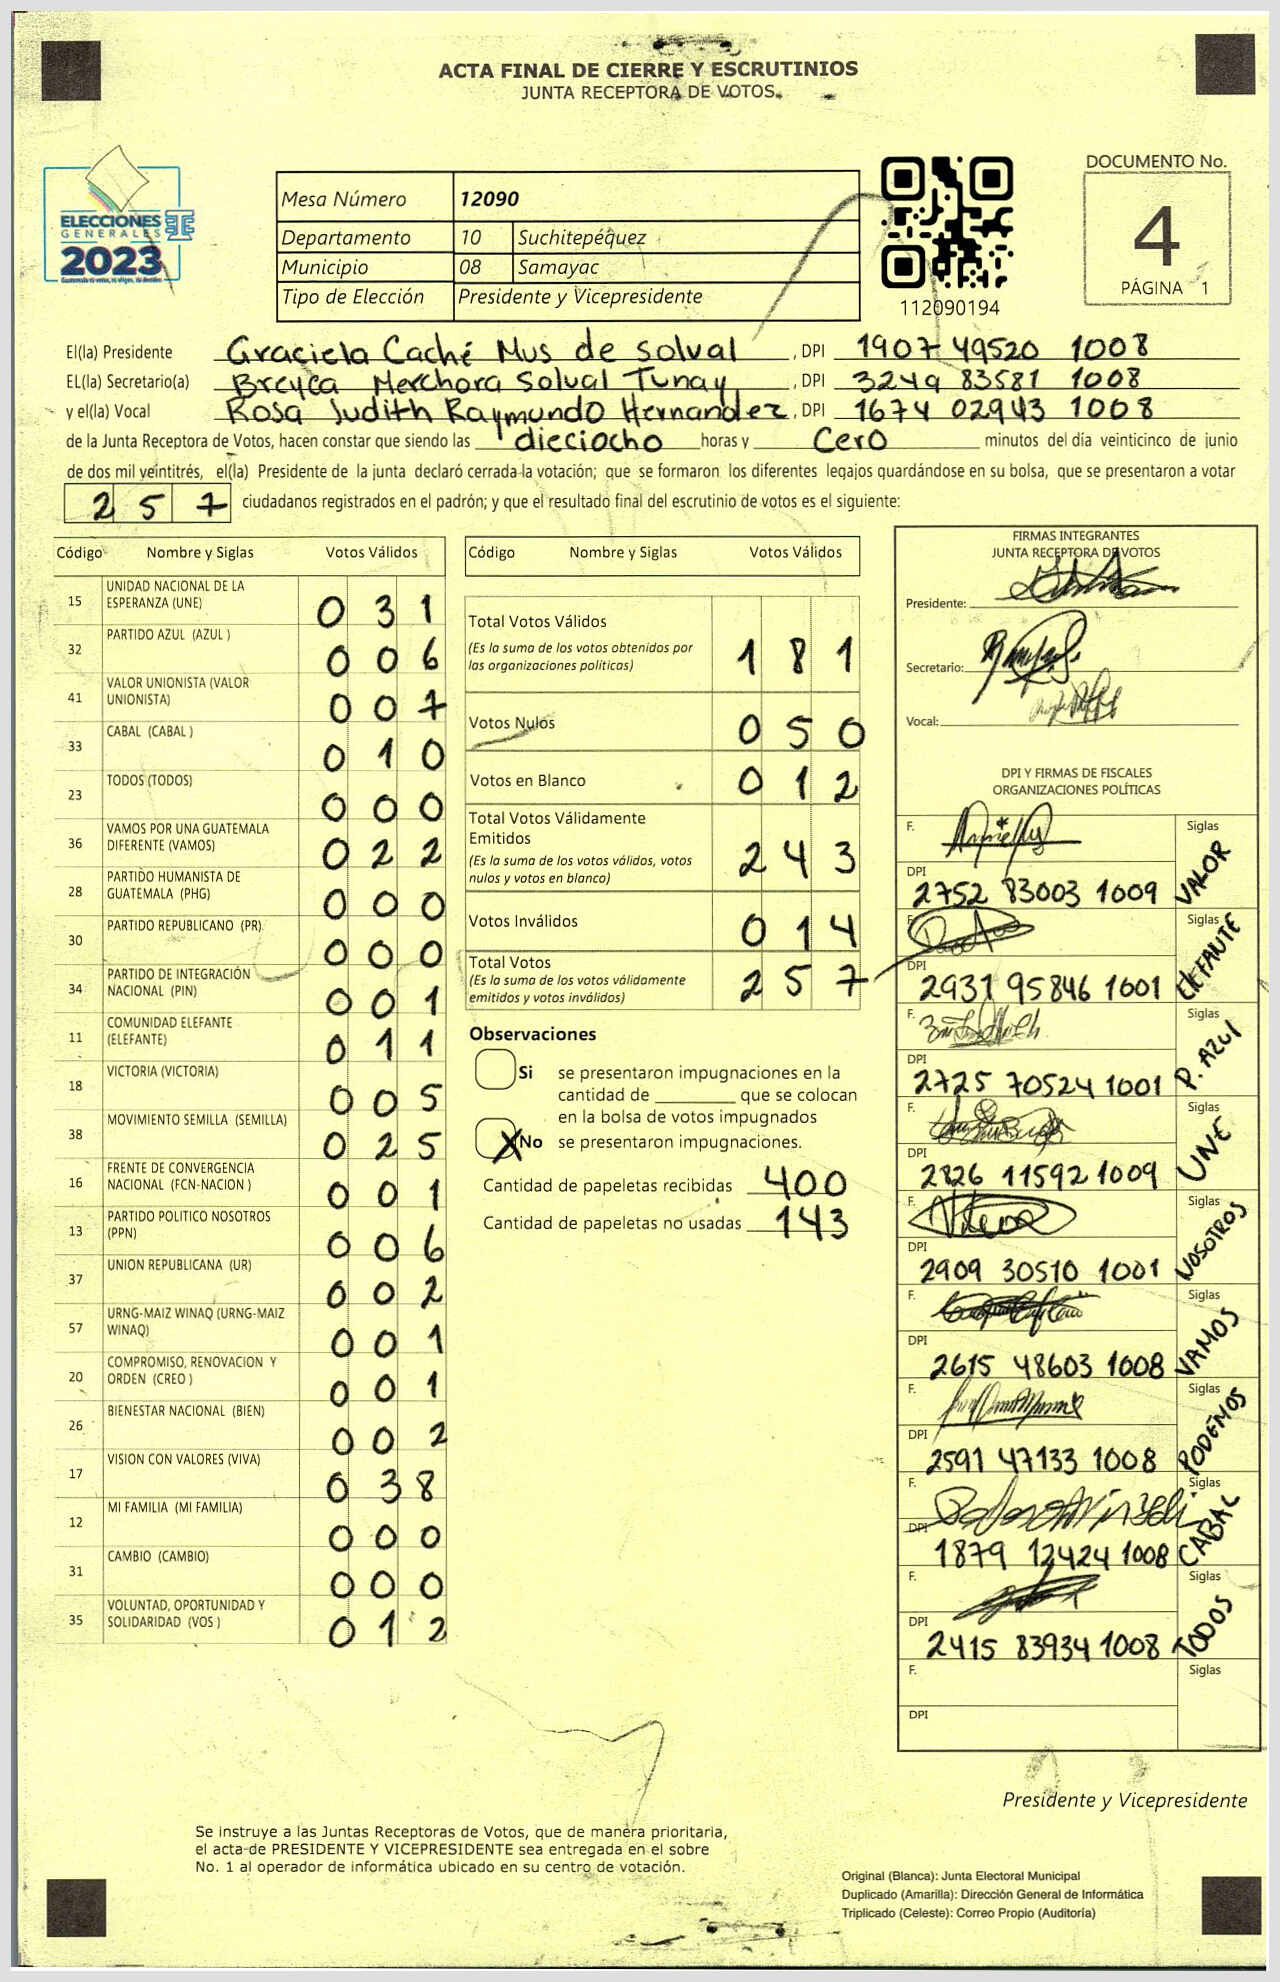 ACTA FINAL DE CIERRE Y ESCRUTINIOS
JUNTA RECEPTORA DE VOTOS.
ELECCIONES
GENERALES
2023
Mesa Número 12090
Departamento 10 Suchitepéquez
Municipio 08 Samayac
Tipo de Elección Presidente y Vicepresidente
112090194
DOCUMENTO No.
4
PÁGINA 1
El(la) Presidente Graciela Caché Mus de Solval , DPI 1907 49520 1008
EL(la) Secretario(a) Breyca Merchora Solval Tunay , DPI 3249 83581 1008
y el(la) Vocal Rosa Judith Raymundo Hernandez , DPI 1674 02943 1008
de la Junta Receptora de Votos, hacen constar que siendo las dieciocho horas y Cero minutos del día veinticinco de junio
de dos mil veintitrés, el(la) Presidente de la junta declaró cerrada la votación; que se formaron los diferentes legajos quardándose en su bolsa, que se presentaron a votar
257 ciudadanos registrados en el padrón; y que el resultado final del escrutinio de votos es el siguiente:
Código Nombre y Siglas Votos Válidos
15 UNIDAD NACIONAL DE LA ESPERANZA (UNE) 031
32 PARTIDO AZUL (AZUL ) 006
41 VALOR UNIONISTA (VALOR UNIONISTA) 007
33 CABAL (CABAL ) 010
23 TODOS (TODOS) 000
36 VAMOS POR UNA GUATEMALA DIFERENTE (VAMOS) 022
28 PARTIDO HUMANISTA DE GUATEMALA (PHG) 000
30 PARTIDO REPUBLICANO (PR) 000
34 PARTIDO DE INTEGRACIÓN NACIONAL (PIN) 001
11 COMUNIDAD ELEFANTE (ELEFANTE) 011
18 VICTORIA (VICTORIA) 005
38 MOVIMIENTO SEMILLA (SEMILLA) 025
16 FRENTE DE CONVERGENCIA NACIONAL (FCN-NACION ) 001
13 PARTIDO POLITICO NOSOTROS (PPN) 006
37 UNION REPUBLICANA (UR) 002
57 URNG-MAIZ WINAQ (URNG-MAIZ WINAQ) 001
20 COMPROMISO, RENOVACION Y ORDEN (CREO ) 001
26 BIENESTAR NACIONAL (BIEN) 002
17 VISION CON VALORES (VIVA) 038
12 MI FAMILIA (MI FAMILIA) 000
31 CAMBIO (CAMBIO) 000
35 VOLUNTAD, OPORTUNIDAD Y SOLIDARIDAD (VOS ) 012
Código Nombre y Siglas Votos Válidos
Total Votos Válidos 181
(Es la suma de los votos obtenidos por
las organizaciones políticas)
Votos Nulos 050
Votos en Blanco 012
Total Votos Válidamente
Emitidos 243
(Es la suma de los votos válidos, votos
nulos y votos en blanco)
Votos Inválidos 014
Total Votos 257
(Es la suma de los votos válidamente
emitidos y votos inválidos)
Observaciones
Si se presentaron impugnaciones en la
cantidad de ________ que se colocan
en la bolsa de votos impugnados
X No se presentaron impugnaciones.
Cantidad de papeletas recibidas 400
Cantidad de papeletas no usadas 143
FIRMAS INTEGRANTES
JUNTA RECEPTORA DE VOTOS
Presidente:
Secretario:
Vocal:
DPI Y FIRMAS DE FISCALES
ORGANIZACIONES POLÍTICAS
F. Siglas VALOR
DPI 2752 83003 1009
F. Siglas ElEFANTE
DPI 2931 95846 1001
F. Siglas P. AZUl
DPI 2725 70524 1001
F. Siglas UNE
DPI 2826 11592 1009
F. Siglas NOSOTROS
DPI 2909 30510 1001
F. Siglas VAMOS
DPI 2615 48603 1008
F. Siglas PODEMOS
DPI 2591 47133 1008
F. Siglas CABAL
DPI 1879 12424 1008
F. Siglas TODOS
DPI 2415 83934 1008
F. Siglas
DPI
Presidente y Vicepresidente
Se instruye a las Juntas Receptoras de Votos, que de manera prioritaria,
el acta de PRESIDENTE Y VICEPRESIDENTE sea entregada en el sobre
No. 1 al operador de informática ubicado en su centro de votación.
Original (Blanca): Junta Electoral Municipal
Duplicado (Amarilla): Dirección General de Informática
Triplicado (Celeste): Correo Propio (Auditoría)